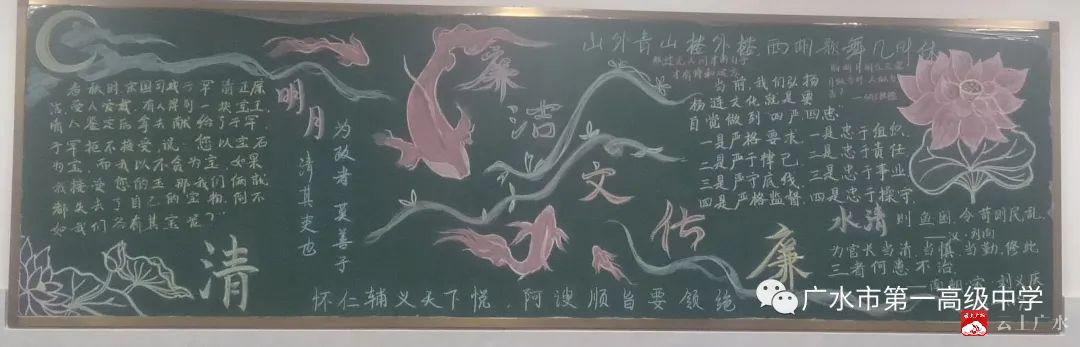 春秋时,宋国司城子罕清正廉
洁,受人爱戴。有人得到一块宝玉,
请人鉴定后拿去献给子罕,
子罕拒不接受,说:“您以宝石
为宝,而我以不贪为宝。如果
我接受了您的玉,那我们俩就
都失去了自己的宝物。倒不
如我们各有其宝呢?”
明月
清
为政者莫善于
清其吏也
廉洁文化
山外青山楼外楼西湖歌舞几时休
当前,我们弘扬
杨涟文化就是要
自觉做到“四严四忠”
一是严格要求,
二是严于律己,
三是严守底线,
四是严格监督,
一是忠于组织,
二是忠于责任
三是忠于事业
四是忠于操守
水清则鱼困,令苛则民乱
汉·刘向
为官长当清、当慎、当勤,修此
三者何患不治
廉
怀仁辅义天下悦 阿谀顺旨要领绝
广水市第一高级中学
云上广水